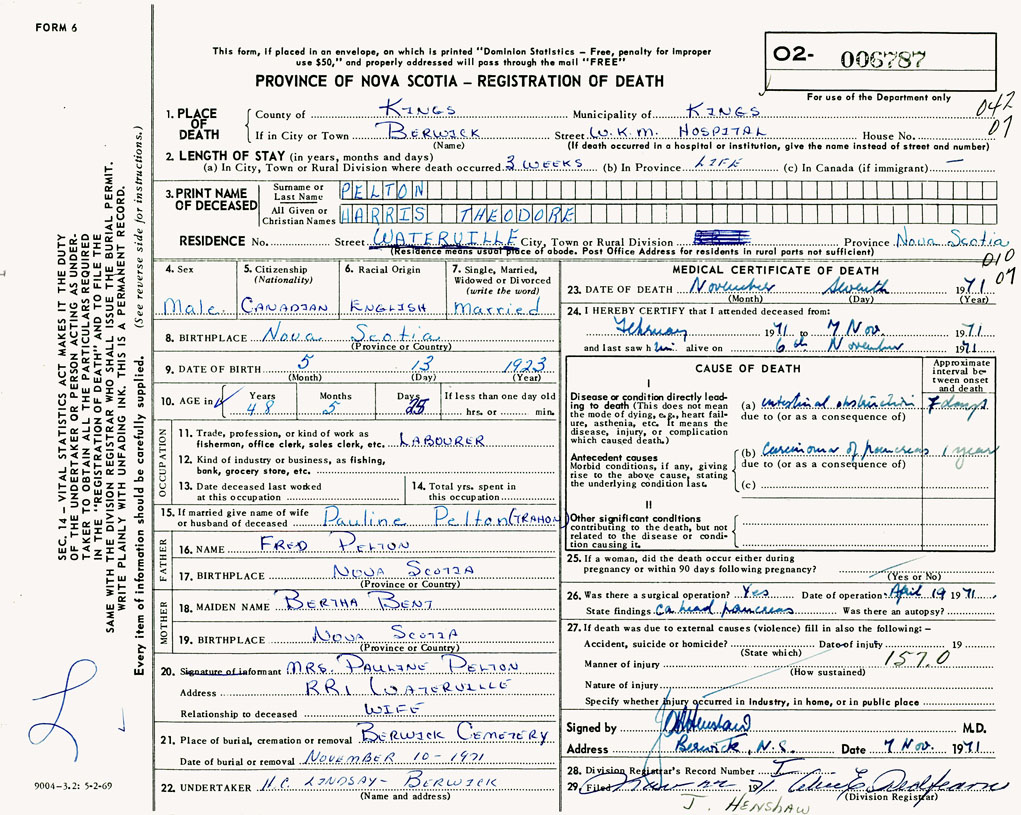 FORM 6
This form, if placed in an envelope, on which is printed "Dominion Statistics – Free, penalty for improper
use $50," and properly addressed will pass through the mail "FREE"
PROVINCE OF NOVA SCOTIA – REGISTRATION OF DEATH
02- 006787
For use of the Department only
042
07
1. PLACE OF DEATH
County of KINGS Municipality of KINGS
If in City or Town BERWICK Street W.K.M. HOSPITAL House No.
(Name) (If death occurred in a hospital or institution, give the name instead of street and number)
2. LENGTH OF STAY (in years, months and days)
(a) In City, Town or Rural Division where death occurred 3 WEEKS (b) In Province LIFE (c) In Canada (if immigrant) —
3. PRINT NAME OF DECEASED
Surname or Last Name PELTON
All Given or Christian Names HARRIS THEODORE
RESIDENCE No. Street WATERVILLE City, Town or Rural Division Province Nova Scotia
(Residence means usual place of abode. Post Office Address for residents in rural parts not sufficient)
010
07
4. Sex Male
5. Citizenship (Nationality) CANADIAN
6. Racial Origin ENGLISH
7. Single, Married, Widowed or Divorced (write the word) Married
8. BIRTHPLACE Nova Scotia
(Province or Country)
9. DATE OF BIRTH 5 13 1923
(Month) (Day) (Year)
10. AGE in Years 48 Months 5 Days 25 If less than one day old hrs. or min.
OCCUPATION
11. Trade, profession, or kind of work as
fisherman, office clerk, sales clerk, etc. LABOURER
12. Kind of industry or business, as fishing,
bank, grocery store, etc.
13. Date deceased last worked
at this occupation
14. Total yrs. spent in
this occupation
15. If married give name of wife
or husband of deceased Pauline Pelton (TRAHON)
FATHER
16. NAME FRED PELTON
17. BIRTHPLACE NOVA SCOTIA
(Province or Country)
MOTHER
18. MAIDEN NAME BERTHA BENT
19. BIRTHPLACE NOVA SCOTIA
(Province or Country)
20. Signature of informant MRS. PAULINE PELTON
Address RR1 WATERVILLE
Relationship to deceased WIFE
21. Place of burial, cremation or removal BERWICK CEMETERY
Date of burial or removal NOVEMBER 10-1971
22. UNDERTAKER H.C. LINDSAY- BERWICK
(Name and address)
MEDICAL CERTIFICATE OF DEATH
23. DATE OF DEATH November Seventh 1971
(Month) (Day) (Year)
24. I HEREBY CERTIFY that I attended deceased from:
February 1971 to 7 Nov. 1971
and last saw him alive on 6th November 1971
CAUSE OF DEATH
Approximate interval between onset and death
I
Disease or condition directly leading to death (This does not mean the mode of dying, e.g., heart failure, asthenia, etc. It means the disease, injury, or complication which caused death.)
(a) intestinal obstruction 7 days
due to (or as a consequence of)
Antecedent causes
Morbid conditions, if any, giving rise to the above cause, stating the underlying condition last.
(b) Carcinoma of pancreas 1 year
due to (or as a consequence of)
(c)
II
Other significant conditions
contributing to the death, but not related to the disease or condition causing it.
25. If a woman, did the death occur either during
pregnancy or within 90 days following pregnancy?
(Yes or No)
26. Was there a surgical operation? Yes Date of operation April 19 1971
State findings Ca head pancreas Was there an autopsy?
27. If death was due to external causes (violence) fill in also the following: –
Accident, suicide or homicide? Date of injury 19
(State which)
Manner of injury 157.0
(How sustained)
Nature of injury
Specify whether injury occurred in Industry, in home, or in public place
Signed by J Henshaw M.D.
Address Berwick, N.S. Date 7 Nov. 1971
28. Division Registrar's Record Number
29. Filed 19
(Division Registrar)
J. HENSHAW
SEC. 14 – VITAL STATISTICS ACT MAKES IT THE DUTY
OF THE UNDERTAKER OR PERSON ACTING AS UNDER-
TAKER TO OBTAIN ALL THE PARTICULARS REQUIRED
IN THE "REGISTRATION OF DEATH" AND TO FILE THE
SAME WITH THE DIVISION REGISTRAR WHO SHALL ISSUE THE BURIAL PERMIT.
WRITE PLAINLY WITH UNFADING INK. THIS IS A PERMANENT RECORD.
Every item of information should be carefully supplied. (See reverse side for instructions.)
9004-3.2: 5-2-69